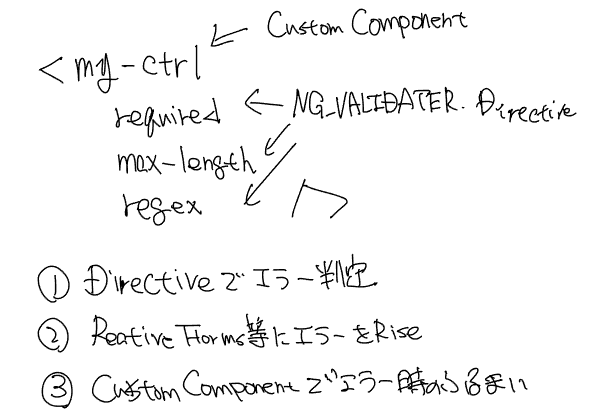 Custom Component
<my-ctrl
required ← NG_VALIDATER. Directive
max-length
regex
① Directiveでエラー判定
② Reative Forms等にエラーをRise
③ Custom Componentでエラー時のふるまい